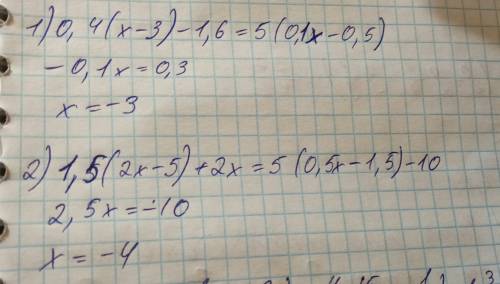 1) 0,4(x-3)-1,6=5(0,1x-0,5)
-0,1x=0,3
x=-3
2) 1,5(2x-5)+2x=5(0,5x-1,5)-10
2,5x=-10
x=-4